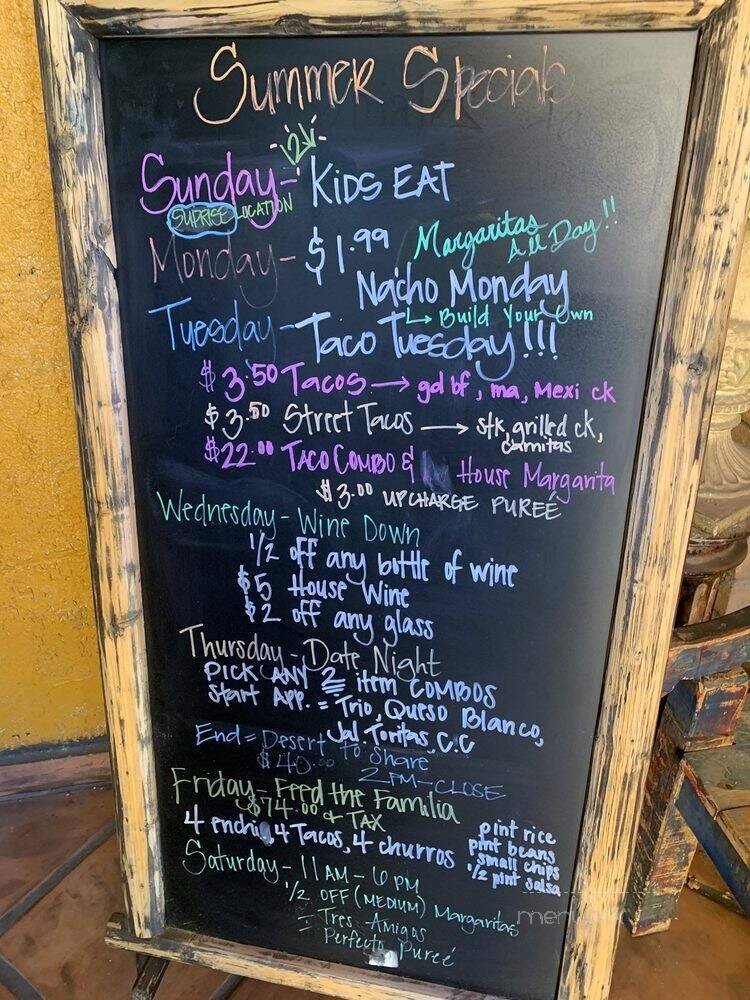 Summer Specials
Sunday - KIDS EAT
SUPRISE LOCATION
Monday - $1.99 Margaritas All Day!!
Nacho Monday
↳ Build Your Own
Tuesday - Taco Tuesday!!!
$3.50 Tacos → gd bf, ma, Mexi ck
$3.50 Street Tacos → stk, grilled ck,
carnitas
$22.00 TACO COMBO & House Margarita
$3.00 UPCHARGE PUREÉ
Wednesday - Wine Down
1/2 off any bottle of wine
$5 House Wine
$2 off any glass
Thursday - Date Night
PICK ANY 2 item COMBOS
Start APP. = Trio, Queso Blanco,
Jal. Toritas, C.C
End = Desert to Share
$40.00 2 PM - CLOSE
Friday - Feed the Familia
$74.00 + TAX
4 ench, 4 Tacos, 4 churros
pint rice
pint beans
small chips
1/2 pint salsa
Saturday - 11 AM - 6 PM
1/2 OFF (MEDIUM) Margaritas
= Tres Amigas
Perfecto Pureé